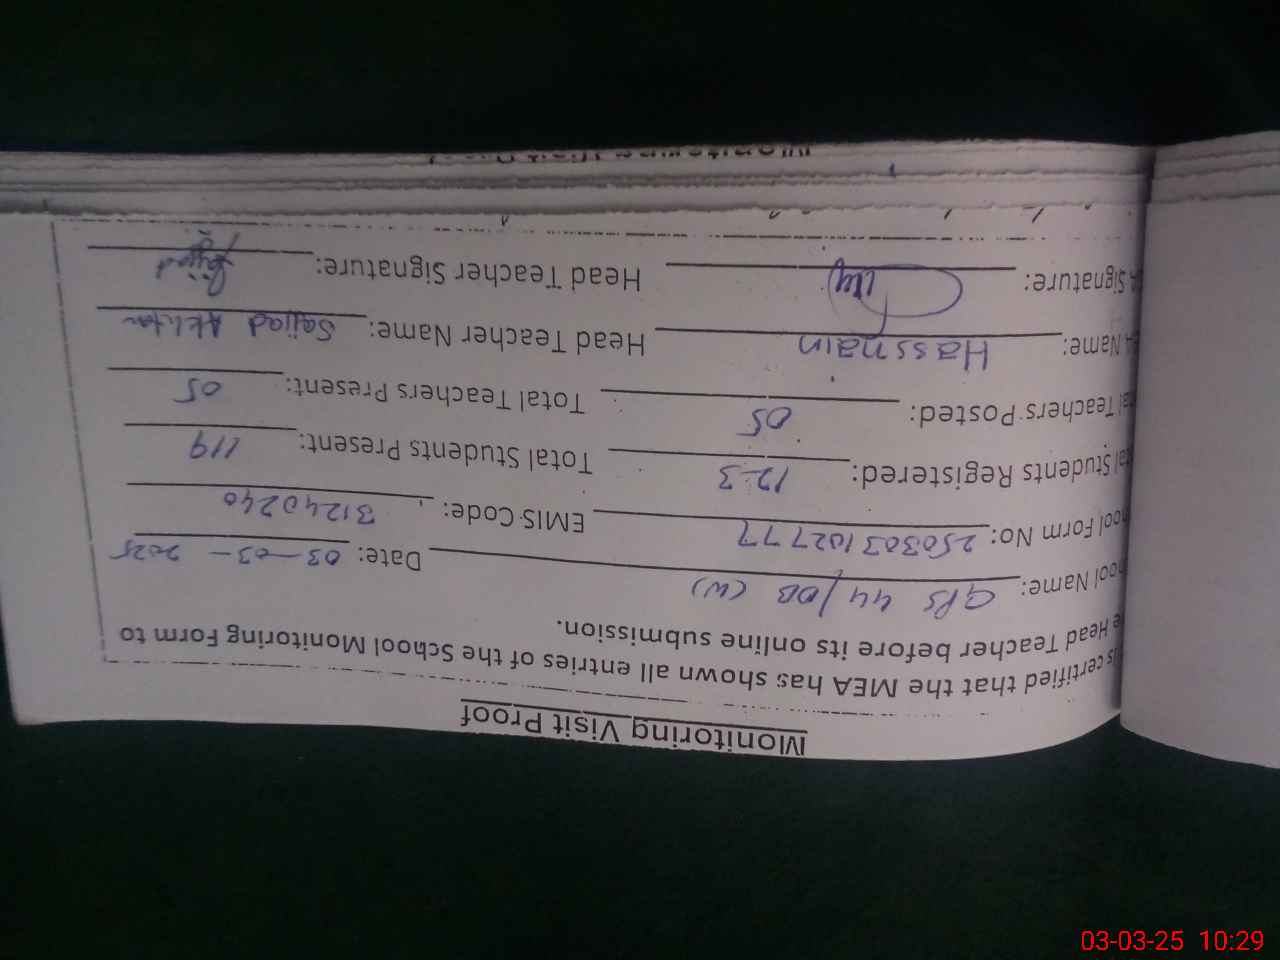 Monitoring Visit Proof
is certified that the MEA has shown all entries of the School Monitoring Form to
e Head Teacher before its online submission.
hool Name: GPS 44/DB (W) Date: 03-03-2025
hool Form No: 250303102777 EMIS Code: 31240240
tal Students Registered: 123 Total Students Present: 119
tal Teachers Posted: 05 Total Teachers Present: 05
A Name: Hassnain Head Teacher Name: Sajjad Akhtar
A Signature: Head Teacher Signature: Sajjad
03-03-25 10:29